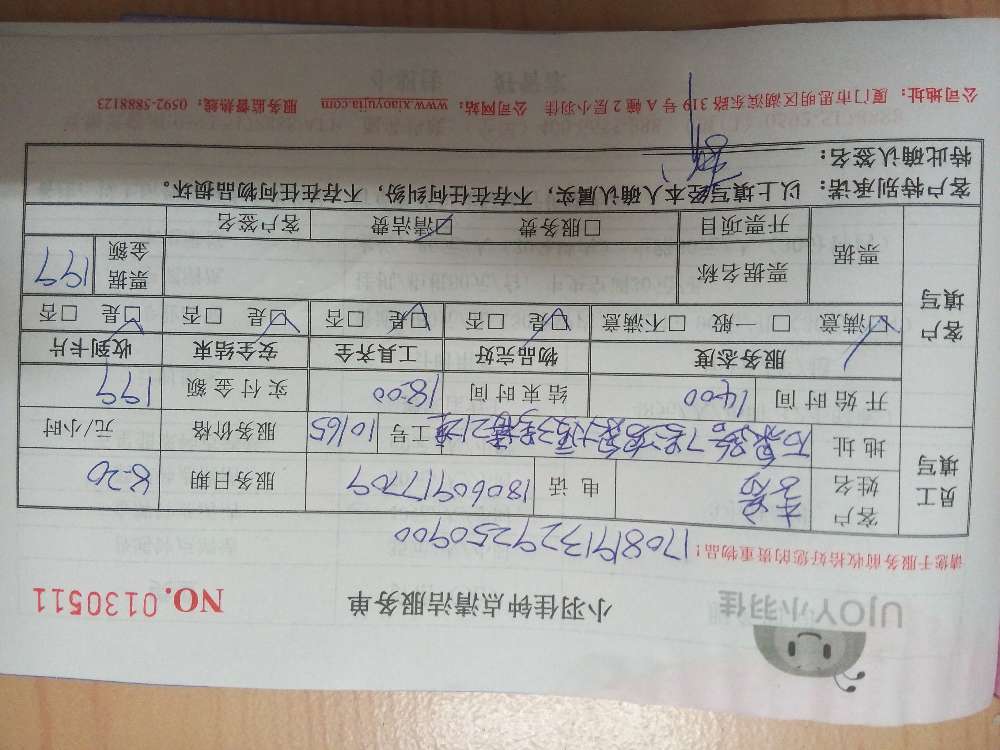 UJOY小羽佳
小羽佳钟点清洁服务单
NO.0130511
请您于服务前收拾好您的贵重物品!
17081913292509​00
员工填写
客户姓名
电话 18060917709
服务日期 8-20
地址
工号 10165
服务价格 元/小时
开始时间 14:00
结束时间 18:00
实付金额 199
客户填写
服务态度 物品完好 工具齐全 安全结束 收到卡片
☑满意 □一般 □不满意 ☑是 □否 ☑是 □否 ☑是 □否 ☑是 □否
票据 票据名称 票据金额 199
开票项目 □服务费 ☑清洁费 客户签名
客户特别承诺: 以上填写经本人确认属实, 不存在任何纠纷, 不存在任何物品损坏。
特此确认签名:
公司地址: 厦门市思明区湖滨东路319号A幢2层小羽佳 公司网站: www.xiaoyujia.com 服务监督热线: 0592-5888123